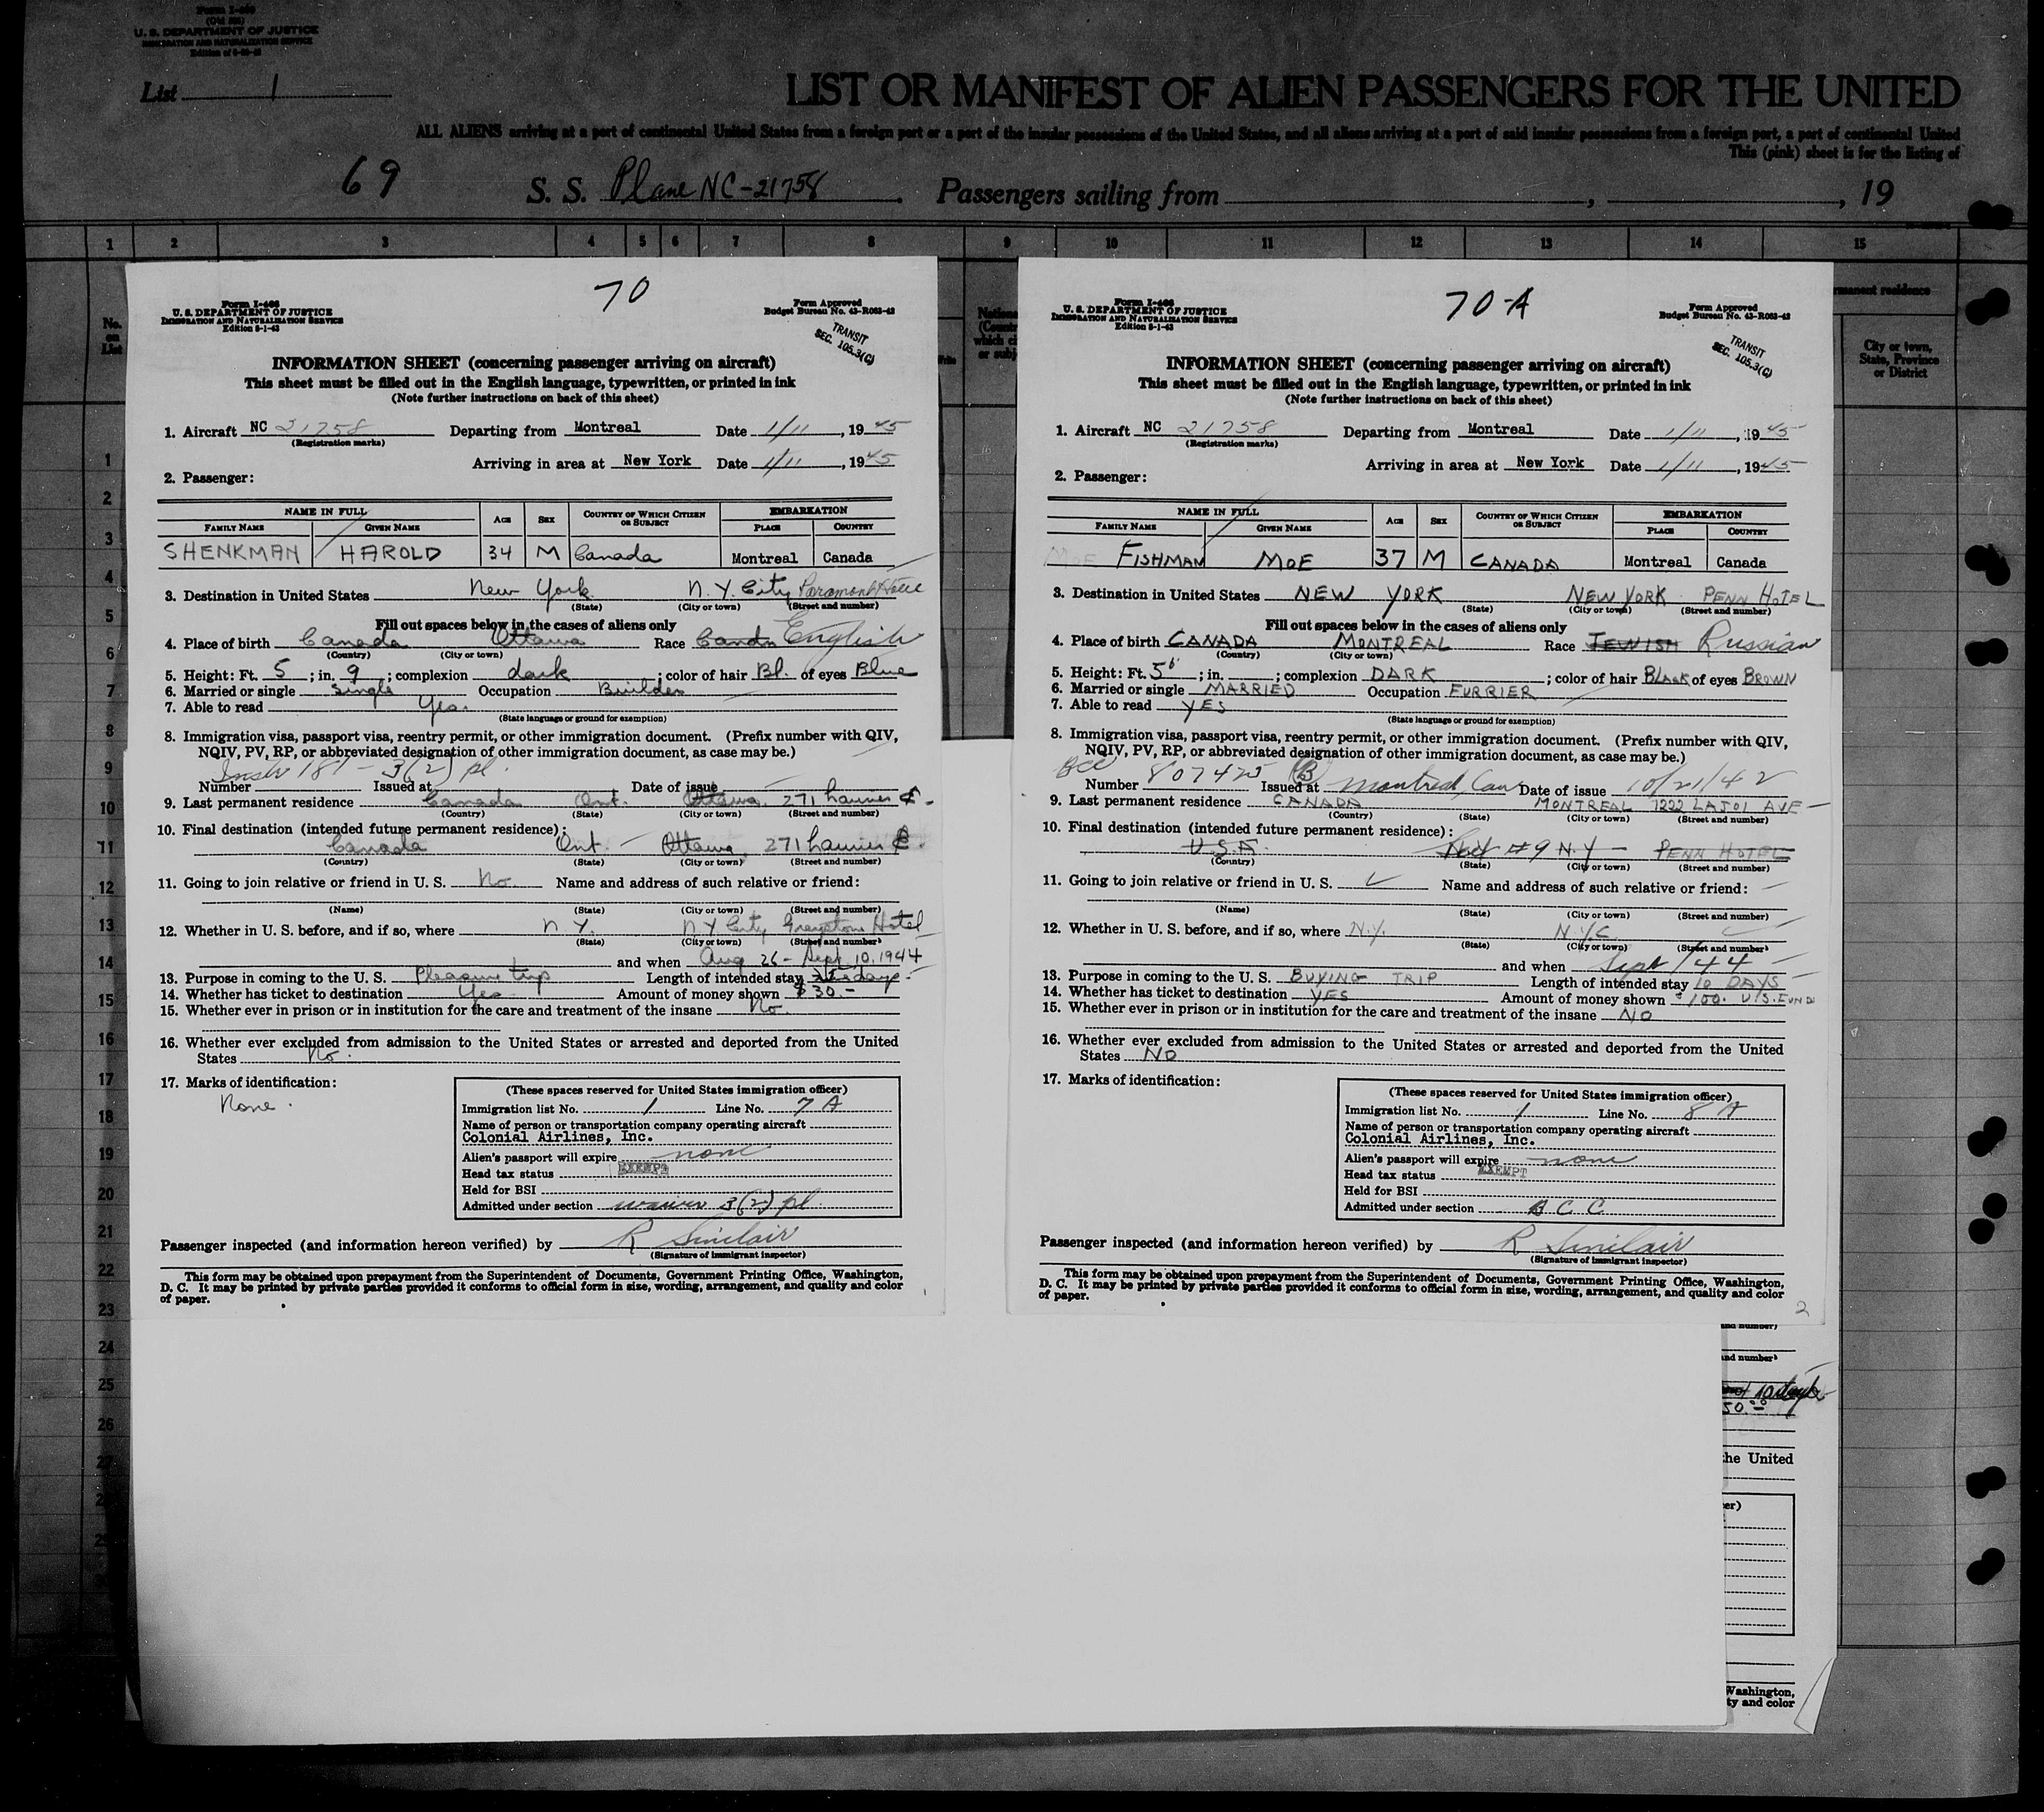 Form I-466
(Old 500)
U. S. DEPARTMENT OF JUSTICE
IMMIGRATION AND NATURALIZATION SERVICE
List 1
LIST OR MANIFEST OF ALIEN PASSENGERS FOR THE UNITED
ALL ALIENS arriving at a port of continental United States from a foreign port or a port of the insular possessions of the United States, and all aliens arriving at a port of said insular possessions from a foreign port, a port of continental United
This (pink) sheet is for the listing of
69 S. S. Plane NC-21758. Passengers sailing from , , 19
1 2 3 4 5 6 7 8 9 10 11 12 13 14 15
No. on List
City or town, State, Province or District
70
Form I-466
U. S. DEPARTMENT OF JUSTICE
IMMIGRATION AND NATURALIZATION SERVICE
Edition 5-1-43
Form Approved
Budget Bureau No. 43-R063-42
TRANSIT
SEC. 105.3(C)
INFORMATION SHEET (concerning passenger arriving on aircraft)
This sheet must be filled out in the English language, typewritten, or printed in ink
(Note further instructions on back of this sheet)
1. Aircraft NC 21758 Departing from Montreal Date 1/11, 1945
(Registration marks)
Arriving in area at New York Date 1/11, 1945
2. Passenger:
NAME IN FULL AGE SEX COUNTRY OF WHICH CITIZEN OR SUBJECT EMBARKATION
FAMILY NAME GIVEN NAME PLACE COUNTRY
SHENKMAN HAROLD 34 M Canada Montreal Canada
3. Destination in United States New York N.Y. City Paramont Hotel
(State) (City or town) (Street and number)
Fill out spaces below in the cases of aliens only
4. Place of birth Canada Ottawa Race English
(Country) (City or town)
5. Height: Ft. 5; in. 9; complexion dark; color of hair Bl. of eyes Blue
6. Married or single Single Occupation Builder
7. Able to read Yes.
(State language or ground for exemption)
8. Immigration visa, passport visa, reentry permit, or other immigration document. (Prefix number with QIV,
NQIV, PV, RP, or abbreviated designation of other immigration document, as case may be.)
Instr 187 - 3(2) pl.
Number Issued at Date of issue
9. Last permanent residence Canada Ont. Ottawa. 271 Laurier E.
(Country) (State) (City or town) (Street and number)
10. Final destination (intended future permanent residence):
Canada Ont. Ottawa, 271 Laurier E.
(Country) (State) (City or town) (Street and number)
11. Going to join relative or friend in U. S. No. Name and address of such relative or friend:
(Name) (State) (City or town) (Street and number)
12. Whether in U. S. before, and if so, where N.Y. N Y City Greystone Hotel
(State) (City or town) (Street and number)
and when Aug 26 - Sept. 10, 1944
13. Purpose in coming to the U. S. Pleasure trip Length of intended stay days.
14. Whether has ticket to destination Yes Amount of money shown $30.-
15. Whether ever in prison or in institution for the care and treatment of the insane No.
16. Whether ever excluded from admission to the United States or arrested and deported from the United
States No.
17. Marks of identification:
None.
(These spaces reserved for United States immigration officer)
Immigration list No. 1 Line No. 7 A
Name of person or transportation company operating aircraft
Colonial Airlines, Inc.
Alien's passport will expire none
Head tax status EXEMPT
Held for BSI
Admitted under section waiver 3(2) pl
Passenger inspected (and information hereon verified) by R Sinclair
(Signature of immigrant inspector)
This form may be obtained upon prepayment from the Superintendent of Documents, Government Printing Office, Washington,
D. C. It may be printed by private parties provided it conforms to official form in size, wording, arrangement, and quality and color
of paper.
70-A
Form I-466
U. S. DEPARTMENT OF JUSTICE
IMMIGRATION AND NATURALIZATION SERVICE
Edition 5-1-43
Form Approved
Budget Bureau No. 43-R063-42
TRANSIT
SEC. 105.3(C)
INFORMATION SHEET (concerning passenger arriving on aircraft)
This sheet must be filled out in the English language, typewritten, or printed in ink
(Note further instructions on back of this sheet)
1. Aircraft NC 21758 Departing from Montreal Date 1/11, 1945
(Registration marks)
Arriving in area at New York Date 1/11, 1945
2. Passenger:
NAME IN FULL AGE SEX COUNTRY OF WHICH CITIZEN OR SUBJECT EMBARKATION
FAMILY NAME GIVEN NAME PLACE COUNTRY
MOE FISHMAN MOE 37 M CANADA Montreal Canada
3. Destination in United States NEW YORK NEW YORK PENN HOTEL
(State) (City or town) (Street and number)
Fill out spaces below in the cases of aliens only
4. Place of birth CANADA MONTREAL Race JEWISH Russian
(Country) (City or town)
5. Height: Ft. 5 6; in. ; complexion DARK; color of hair BLACK of eyes BROWN
6. Married or single MARRIED Occupation FURRIER
7. Able to read YES
(State language or ground for exemption)
8. Immigration visa, passport visa, reentry permit, or other immigration document. (Prefix number with QIV,
NQIV, PV, RP, or abbreviated designation of other immigration document, as case may be.)
BCC
Number 807425 (B) Issued at Montreal, Can Date of issue 10/21/42
9. Last permanent residence CANADA MONTREAL 7222 LAJOI AVE
(Country) (State) (City or town) (Street and number)
10. Final destination (intended future permanent residence):
U.S.A. #9 N.Y - PENN HOTEL
(Country) (State) (City or town) (Street and number)
11. Going to join relative or friend in U. S. Name and address of such relative or friend:
(Name) (State) (City or town) (Street and number)
12. Whether in U. S. before, and if so, where N.Y. N.Y.C
(State) (City or town) (Street and number)
and when Sept/44
13. Purpose in coming to the U. S. BUYING TRIP Length of intended stay 10 DAYS
14. Whether has ticket to destination YES Amount of money shown $100. U.S. FUNDS
15. Whether ever in prison or in institution for the care and treatment of the insane NO
16. Whether ever excluded from admission to the United States or arrested and deported from the United
States NO
17. Marks of identification:
(These spaces reserved for United States immigration officer)
Immigration list No. 1 Line No. 8 A
Name of person or transportation company operating aircraft
Colonial Airlines, Inc.
Alien's passport will expire none
Head tax status EXEMPT
Held for BSI
Admitted under section B C C
Passenger inspected (and information hereon verified) by R Sinclair
(Signature of immigrant inspector)
This form may be obtained upon prepayment from the Superintendent of Documents, Government Printing Office, Washington,
D. C. It may be printed by private parties provided it conforms to official form in size, wording, arrangement, and quality and color
of paper.
2
and number)
and number)
10 days
50.
the United
er)
Washington,
ty and color